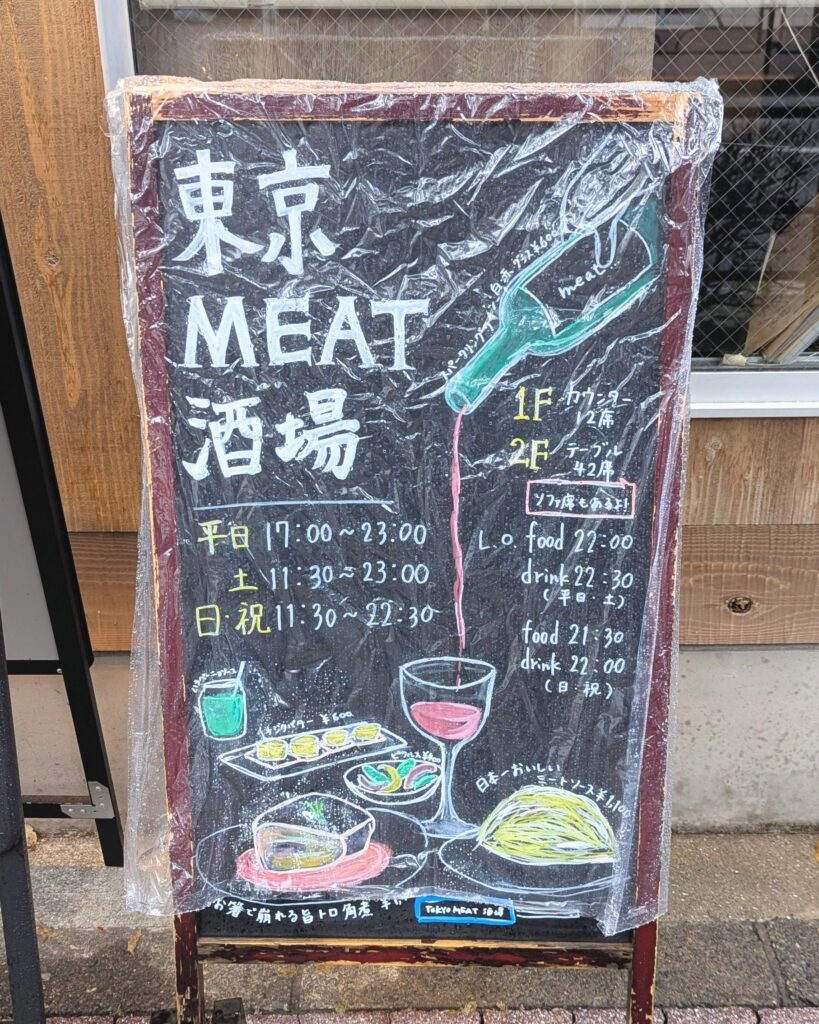 東京
MEAT
酒場
スパークリングワイン 白赤、グラス¥60
meat
1F カウンター
12席
2F テーブル
42席
ソファ席もあるよ!
平日 17:00~23:00
土 11:30~23:00
日・祝 11:30~22:30
L.O. food 22:00
drink 22:30
(平日・土)
food 21:30
drink 22:00
(日・祝)
バター ¥500
ピクルス¥400
日本一おいしい
ミートソース¥1,100
お箸で崩れる旨トロ角煮
TOKYO MEAT 酒場